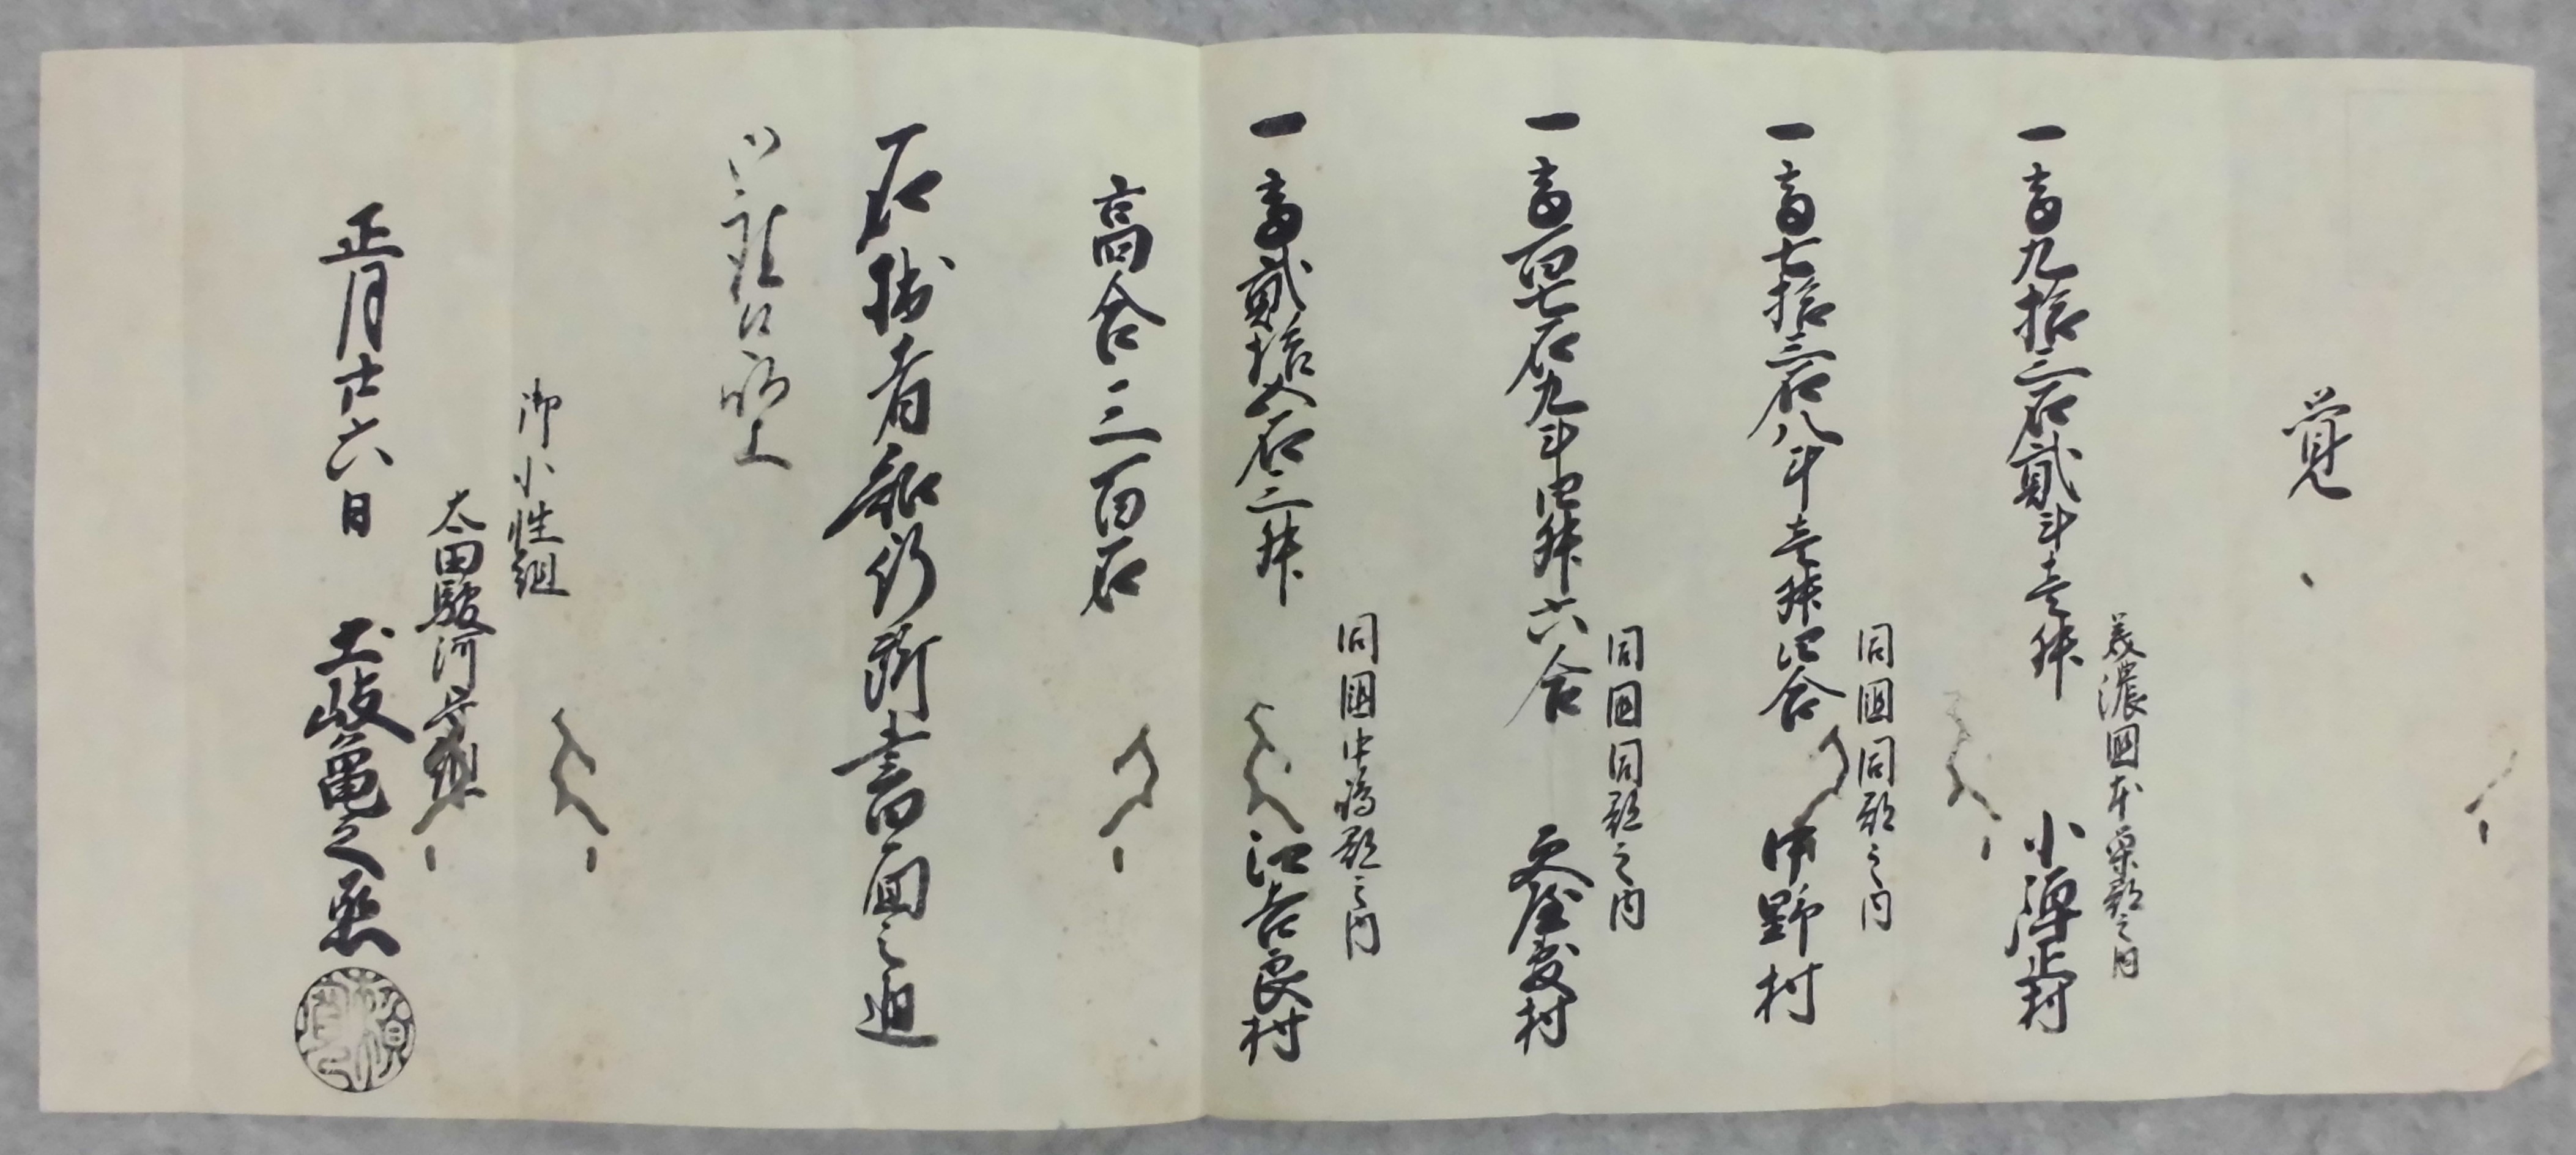 覚
美濃國本巣郡之内
一高九拾三石貳斗壱升 小弾正村
同國同郡之内
一高七拾三石八斗壱升四合 中野村
同國同郡之内
一高百七石九斗四升六合 更屋敷村
同國中嶋郡之内
一高貳拾五石三升 江吉良村
高合三百石
右拙者知行所書面之通
御座候以上
御小性組
太田駿河守組
正月廿六日 土岐亀之丞